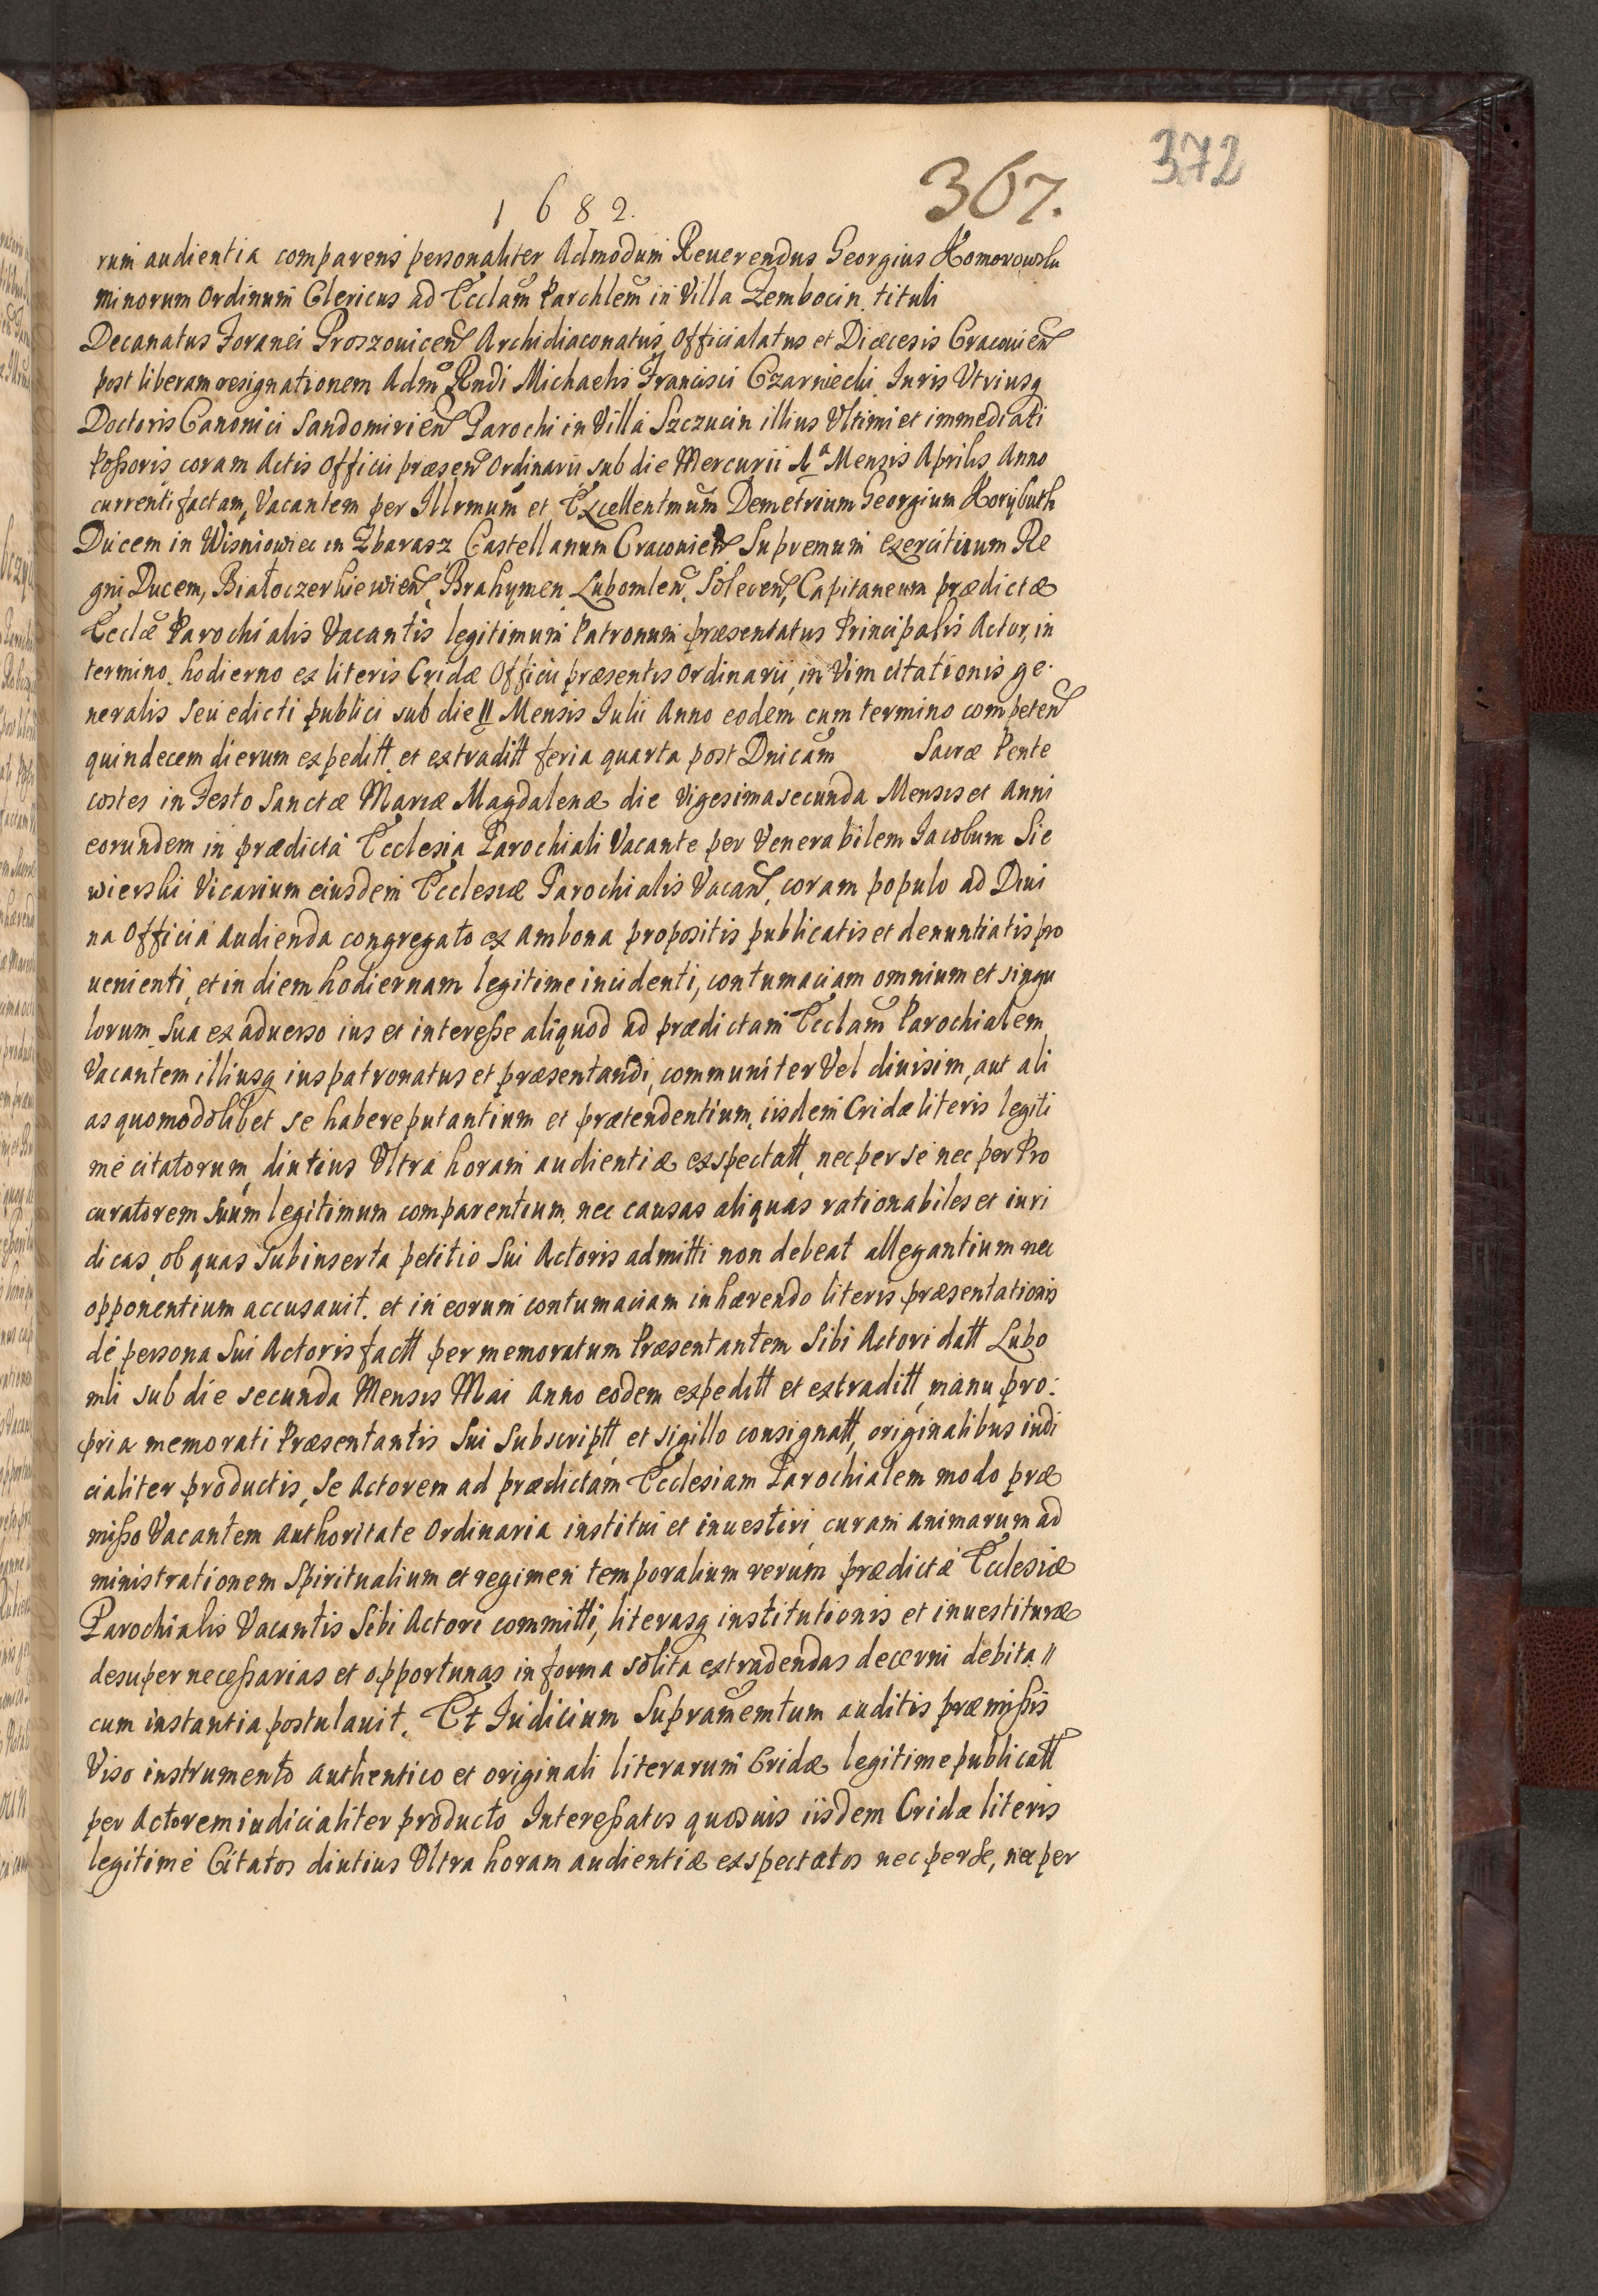 372
367.
1682.
rum audientia comparens personaliter Admodum Reuerendus Georgius Komorowski
minorum Ordinum Clericus ad Ecclam Parchlem in Villa Zembocin tituli
Decanatus Foranei Proszouicen Archidiaconatus Officialatus et Diæcesis Cracouien
post liberam resignationem Adm Rndi Michaelis Francisci Czarniecki Iuris Vtriusq
Doctoris Canonici Sandomirien Parochi in Villa Szczucin illius Vltimi et immediati
Poßoris coram Actis Officii præsen Ordinarii sub die Mercurii 1ª Mensis Aprilis Anno
currenti factam, Vacantem per Illrmum et Excellentmum Demetrium Georgium Korijbuth
Ducem in Wisniowiec in Zbarasz Castellanum Cracouien Supremum exercituum Re
gni Ducem, Białoczerkiewien, Brahymen Lubomlen, Solecen, Capitaneum prædictæ
Ecclæ Parochialis Vacantis legitimum Patronum præsentatus Principalis Actor, in
termino hodierno ex literis Cridæ Officii præsentis Ordinarii, in Vim citationis ge-
neralis seu edicti publici sub die 11 Mensis Iulii Anno eodem cum termino competen
quindecem dierum expeditt et extraditt feria quarta post Dnicam Sacræ Pente
costes in Festo Sanctæ Mariæ Magdalenæ die Vigesima secunda Mensis et Anni
eorundem in prædicta Ecclesia Parochiali Vacante per Venerabilem Iacobum Sie
wierski Vicarium eiusdem Ecclesiæ Parochialis Vacan, coram populo ad Diui
na Officia Audienda congregato ex Ambona propositis publicatis et denuntiatis pro
uenienti, et in diem hodiernam legitime incidenti, contumaciam omnium et singu
lorum Sua ex aduerso ius et intereße aliquod ad prædictam Ecclam Parochialem
Vacantem illiusq ius patronatus et præsentandi, communiter Vel diuisim, aut ali
as quomodolibet se habere putantium et prætendentium, iisdem Cridæ literis legiti
me citatorum, diutius Vltra horam audientiæ exspectatt, nec per se nec per Pro
curatorem suum legitimum comparentium, nec causas aliquas rationabiles et iuri
dicas, ob quas subinserta petitio Sui Actoris admitti non debeat allegantium nec
opponentium accusauit. et in eorum contumaciam inhærendo literis præsentationis
de persona Sui Actoris factt per memoratum Præsentantem Sibi Actori datt Lubo
mli sub die secunda Mensis Mai Anno eodem expeditt et extraditt, manu pro:
pria memorati Præsentantis Sui Subscriptt et sigillo consignatt, originalibus iudi
cialiter productis, Se Actorem ad prædictam Ecclesiam Parochialem modo præ
mißo Vacantem Authoritate Ordinaria institui et inuestiri, curam Animarum ad
ministrationem Spiritualium et regimen temporalium rerum prædictæ Ecclesiæ
Parochialis Vacantis Sibi Actori committi, literasq institutionis et inuestituræ
desuper neceßarias et opportunas in forma solita extradendas decerni debita //
cum instantia postulauit. Et Iudicium Supramemtum auditis præmißis
Viso instrumento Authentico et originali literarum Cridæ legitime publicatt
per Actorem iudicialiter producto Intereßatos quosuis iisdem Cridæ literis
legitime Citatos diutius Vltra horam audientiæ exspectatos nec per se, nec per